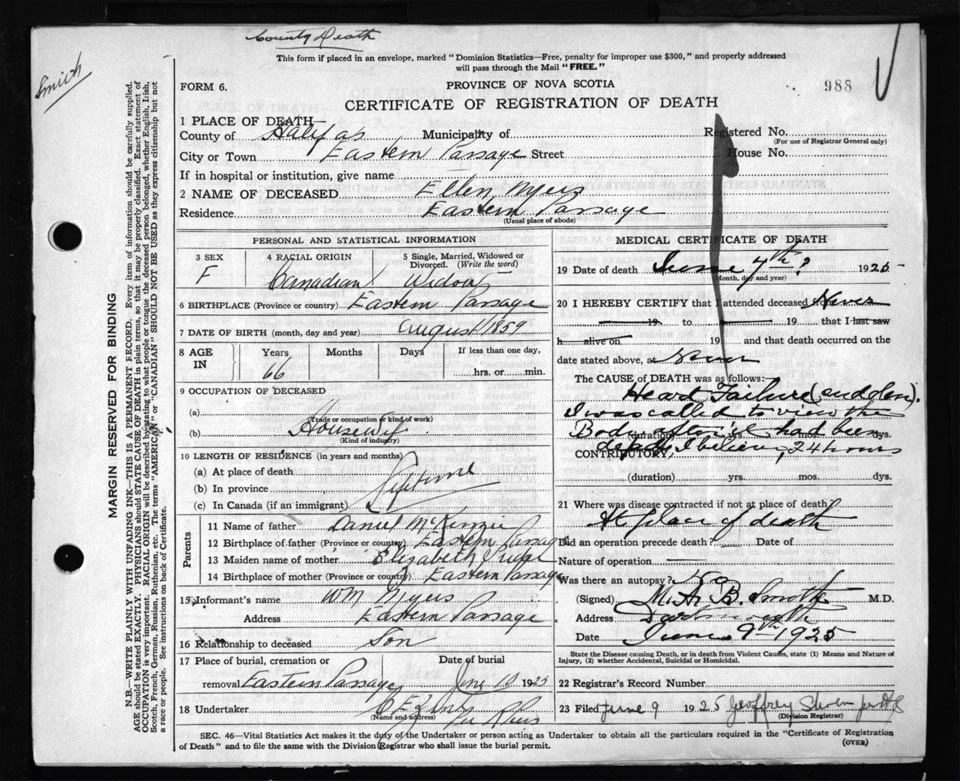 County Death
This form if placed in an envelope, marked "Dominion Statistics—Free, penalty for improper use $300," and properly addressed
will pass through the Mail "FREE."
Smith
FORM 6.
PROVINCE OF NOVA SCOTIA
988
CERTIFICATE OF REGISTRATION OF DEATH
1 PLACE OF DEATH
County of Halifax Municipality of Registered No.
(For use of Registrar General only)
City or Town Eastern Passage Street House No.
If in hospital or institution, give name
2 NAME OF DECEASED Ellen Myers
Residence Eastern Passage
(Usual place of abode)
PERSONAL AND STATISTICAL INFORMATION
3 SEX F
4 RACIAL ORIGIN Canadian
5 Single, Married, Widowed or Divorced. (Write the word) Widow
6 BIRTHPLACE (Province or country) Eastern Passage
7 DATE OF BIRTH (month, day and year) August 1859
8 AGE IN Years 66 Months Days If less than one day, hrs. or min.
9 OCCUPATION OF DECEASED
(a)
(Trade or occupation or kind of work)
(b) Housewife
(Kind of industry)
10 LENGTH OF RESIDENCE (in years and months)
(a) At place of death
(b) In province Lifetime
(c) In Canada (if an immigrant)
Parents
11 Name of father Daniel McKenzie
12 Birthplace of father (Province or country) Eastern Passage
13 Maiden name of mother Elizabeth
14 Birthplace of mother (Province or country) Eastern Passage
15 Informant's name Wm Myers
Address Eastern Passage
16 Relationship to deceased Son
17 Place of burial, cremation or Date of burial
removal Eastern Passage June 10 1925
18 Undertaker
(Name and address)
MEDICAL CERTIFICATE OF DEATH
19 Date of death June 7th? 1925
(Month, day and year)
20 I HEREBY CERTIFY that I attended deceased Never
19 to 19 that I last saw
h alive on 19 and that death occurred on
date stated above, at
The CAUSE OF DEATH was as follows:
Heart Failure (sudden).
I was called to view the
Body after it had been
(duration) yrs. mos. dys.
CONTRIBUTORY
dead, I believe, 24 hours
(duration) yrs. mos. dys.
21 Where was disease contracted if not at place of death?
At place of death
Did an operation precede death? Date of
Nature of operation
Was there an autopsy? No
(Signed) M. A. B. Smith M.D.
Address Dartmouth
Date June 9th 1925
State the Disease causing Death, or in death from Violent Causes, state (1) Means and Nature of
Injury, (2) whether Accidental, Suicidal or Homicidal.
22 Registrar's Record Number
23 Filed June 9 1925 Geoffrey
(Division Registrar)
SEC. 46—Vital Statistics Act makes it the duty of the Undertaker or person acting as Undertaker to obtain all the particulars required in the "Certificate of Registration
of Death" and to file the same with the Division Registrar who shall issue the burial permit.
(OVER)
MARGIN RESERVED FOR BINDING
N.B.—WRITE PLAINLY WITH UNFADING INK—THIS IS A PERMANENT RECORD. Every item of information should be carefully supplied.
AGE should be stated EXACTLY. PHYSICIANS should STATE CAUSE OF DEATH in plain terms, so that it may be properly classified. Exact statement of
OCCUPATION is very important. RACIAL ORIGIN will be described by stating to what people or tongue the deceased person belonged, whether English, Irish,
Scotch, French, German, Russian, Ruthenian, etc. The terms "AMERICAN" or "CANADIAN" SHOULD NOT BE USED as they express citizenship but not
a race or people. See instructions on back of Certificate.